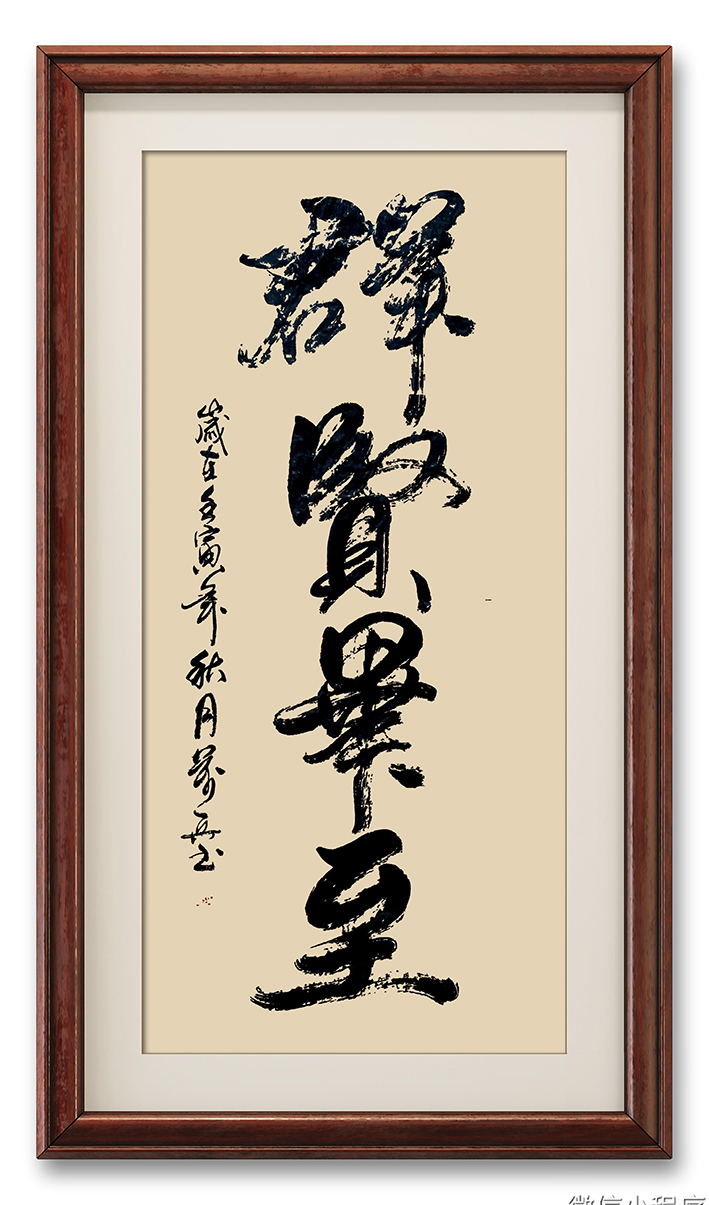 群賢畢至
歲在壬寅年秋月
微信小程序